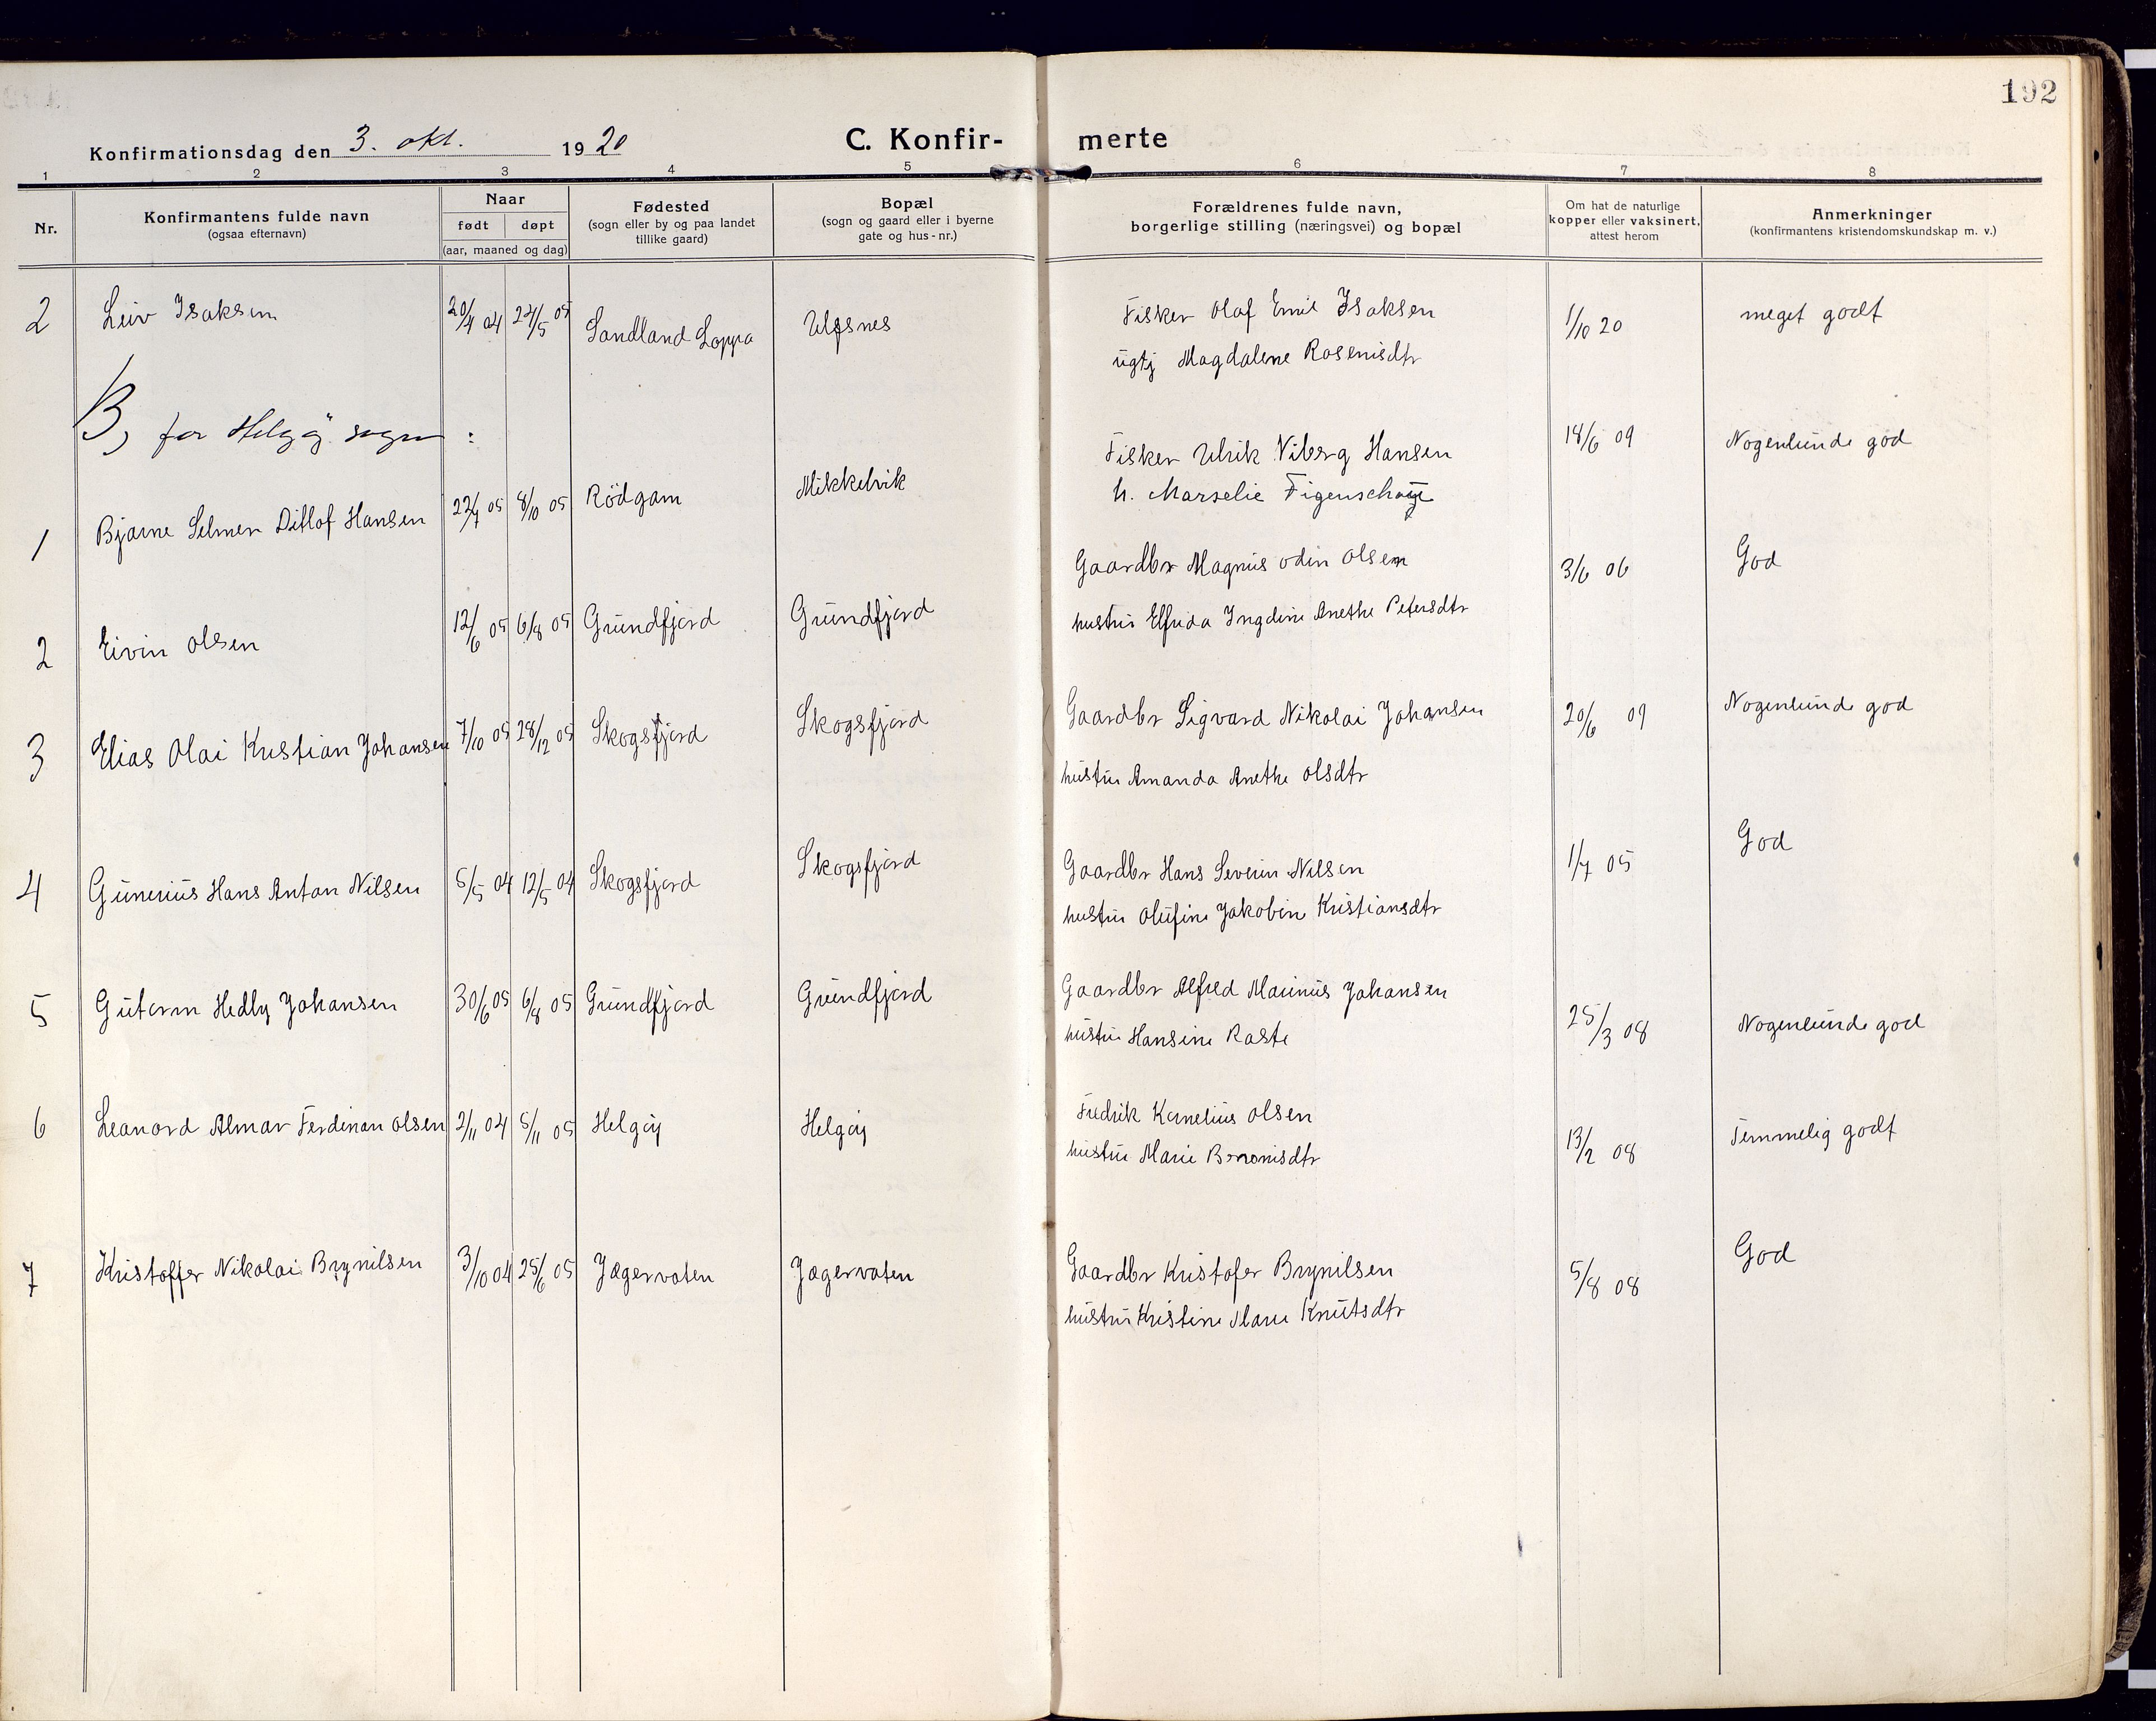 192
Konfirmationsdag den 3. okt. 1920
C. Konfir- merte
1 2 3 4 5 6 7 8
Nr.
Konfirmantens fulde navn
(ogsaa efternavn)
Naar
født døpt
(aar, maaned og dag)
Fødested
(sogn eller by og paa landet
tillike gaard)
Bopæl
(sogn og gaard eller i byerne
gate og hus-nr.)
Forældrenes fulde navn,
borgerlige stilling (næringsvei) og bopæl
Om hat de naturlige
kopper eller vaksinert,
attest herom
Anmerkninger
(konfirmantens kristendomskundskap m. v.)
2 Leiv Isaksen 20/4 04 22/5 05 Sandland Loppa Ulfsnes Fisker Olaf Emil Isaksen 1/10 20 meget godt
ugtj Magdalene Rosenisdtr
B, for Helgøy sogn :
1 Bjarne Selmer Ditlof Hansen 22/7 05 8/10 05 Rödgam Mikkelvik Fisker Ulrik Viberg Hansen 14/6 09 Nogenlunde god
h. Marselie Figenschou
2 Eivin Olsen 12/6 05 6/8 05 Grundfjord Grundfjord Gaardbr Magnus Odin Olsen 3/6 06 God
hustru Elfrida Ingdine Anethe Petersdtr
3 Elias Olai Kristian Johansen 7/10 05 28/12 05 Skogsfjord Skogsfjord Gaardbr Sigvard Nikolai Johansen 20/6 09 Nogenlunde god
hustru Amanda Anethe Olsdtr
4 Gunerius Hans Anton Nilsen 5/5 04 12/5 04 Skogsfjord Skogsfjord Gaardbr Hans Severin Nilsen 1/7 05 God
hustru Olufine Jakobine Kristiansdtr
5 Gutorm Hedly Johansen 30/6 05 6/8 05 Grundfjord Grundfjord Gaardbr Alfred Marinius Johansen 25/3 08 Nogenlunde god
hustru Hansine Raste
6 Leonard Almar Ferdinan Olsen 2/11 04 5/11 05 Helgøy Helgøy Fredrik Kornelius Olsen 13/2 08 Temmelig godt
hustru Marie Beronisdtr
7 Kristoffer Nikolai Brynilsen 3/10 04 25/6 05 Jægervaten Jægervaten Gaardbr Kristofer Brynilsen 5/8 08 God
hustru Kristine Marie Knutsdtr